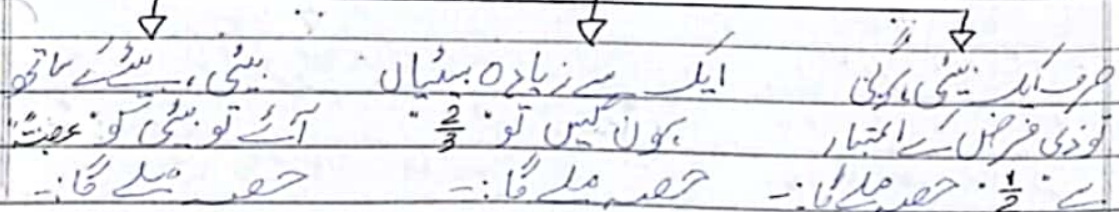 صرف ایک بیٹی ہوگی
تو ذی فرض کے اعتبار
سے "1/2" حصہ ملے گا:-
ایک سے زیادہ بیٹیاں
ہوں گیں تو "2/3"
حصہ ملے گا:-
بیٹی، بیٹے کے ساتھ
آئے تو بیٹی کو "عصبۃ"
حصہ ملے گا:-